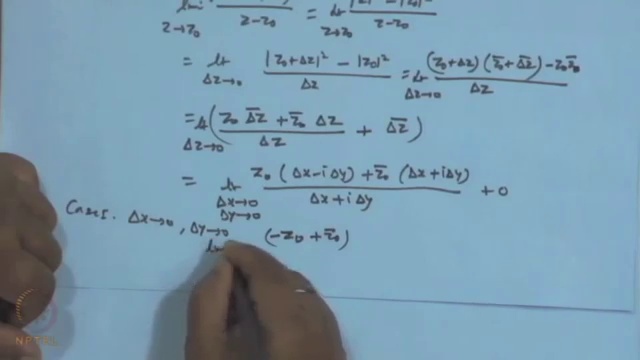 lim z→z₀ z-z₀ = lt z→z₀ |z|² - |z₀|² / z-z₀
= lt Δz→0 |z₀+Δz|² - |z₀|² / Δz = lt Δz→0 (z₀+Δz)(z̄₀+Δ̄z̄)-z₀z̄₀ / Δz
= lt Δz→0 ( z₀ Δ̄z̄ + z̄₀ Δz / Δz + Δ̄z̄ )
= lt Δx→0 Δy→0 z₀ (Δx-iΔy) + z̄₀ (Δx+iΔy) / Δx+iΔy + 0
Case I. Δx→0, Δy→0 (-z₀ + z̄₀)
lim
NPTEL